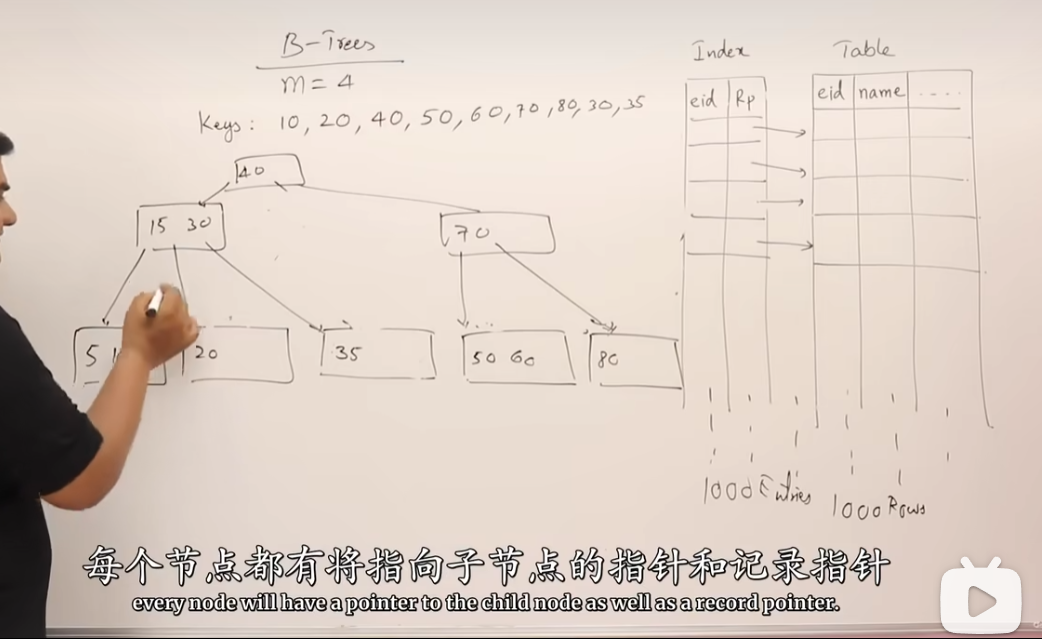 B-Trees
m = 4
Keys: 10, 20, 40, 50, 60, 70, 80, 30, 35
40
15 30
70
5
20
35
50 60
80
Index
eid Rp
1000 Entries
Table
eid name ....
1000 Rows
每个节点都有将指向子节点的指针和记录指针
every node will have a pointer to the child node as well as a record pointer.